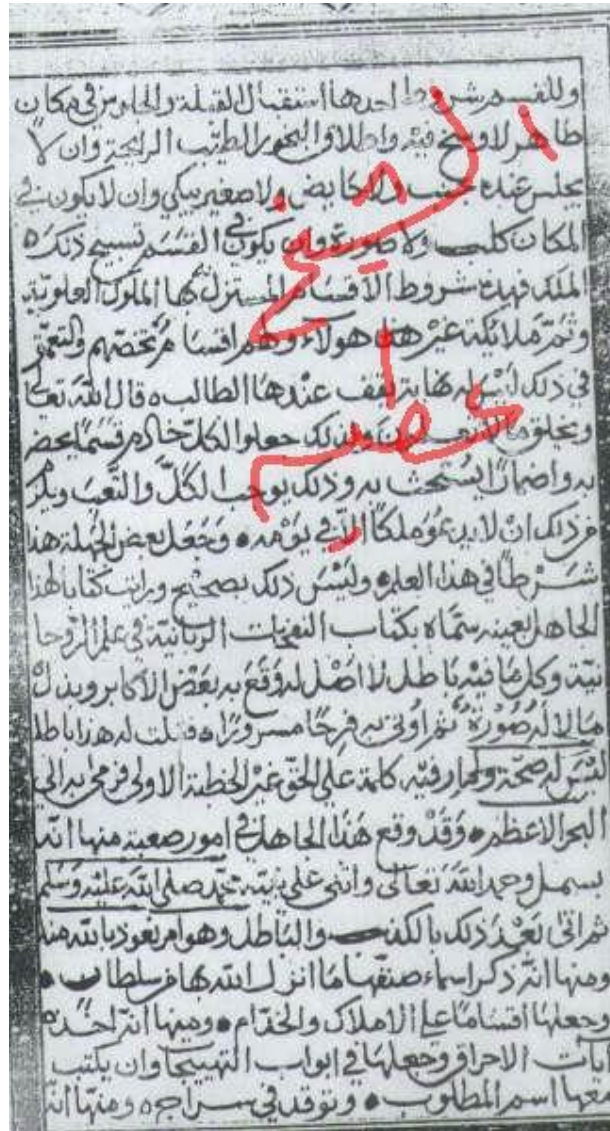 وللقسم شروط احدها استقبال القبلة والجلوس في مكان
طاهر لا وسخ فيه واطلاق البخور الطيب الرايحة وان لا
يجلس عنده جنب ولا حايض ولا صغير يبكي وان لا يكون في
المكان كلب ولا صورة وان يكون في القسم تسبيح ذلك
الملك فهذه شروط الاقسام المستنزل بها الملوك العلوية
وثم ملائكة غير هولاء وهم اقسام تخصهم والتعمق
في ذلك ليس له نهاية يقف عندها الطالب قال الله تعالى
ويخلق ما لا تعلمون وبذلك جعلوا لكل خادم قسما يحضر
به واضمارا يستحث به وذلك يوجب الكلّ والتعب ويلزم
من ذلك ان لا يدعو ملكا الا في يومه وجعل بعض الجهلة هذا
شرطا في هذا العلم وليس ذلك بصحيح ورايت كتابا لهذا
الجاهل بعينه سماه بكتاب النفحات الربانية في علم الروحا
نية وكل ما فيه باطل لا اصل له وقع به بعض الاكابر وبذل
مالا له صورة ثم اوتى به فرحا مسرورا فقلت له هذا باطل
ليس له صحة ولم ار فيه كلمة على الحق غير الخطبة الاولى فرمى به الى
البحر الاعظم وقد وقع هذا الجاهل في امور صعبة منها انه
بسمل وحمد الله تعالى واثنى على نبيه محمد صلى الله عليه وسلم
ثم اتى بعد ذلك بالكفر والباطل وهو امر نعوذ بالله منه
ومنها انه ذكر اسماء صنفها ما انزل الله بها من سلطان
وجعلها اقساما على الاملاك والخدام ومنها انه اخذ
آيات الاحراق وجعلها في ابواب التهييج وان يكتب
معها اسم المطلوب وتوقد في سراج ومنها انه
الشيخ
عطيه